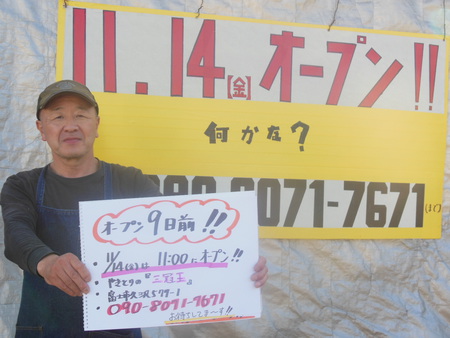 11.14[金]オープン!!
何かな?
090-8071-7671
オープン9日前!!
・11/14(金)は 11:00にオープン!!
・やきとりの『三冠王』
・富士市久沢579-1
・090-8071-7671
お待ちしてま〜す!!